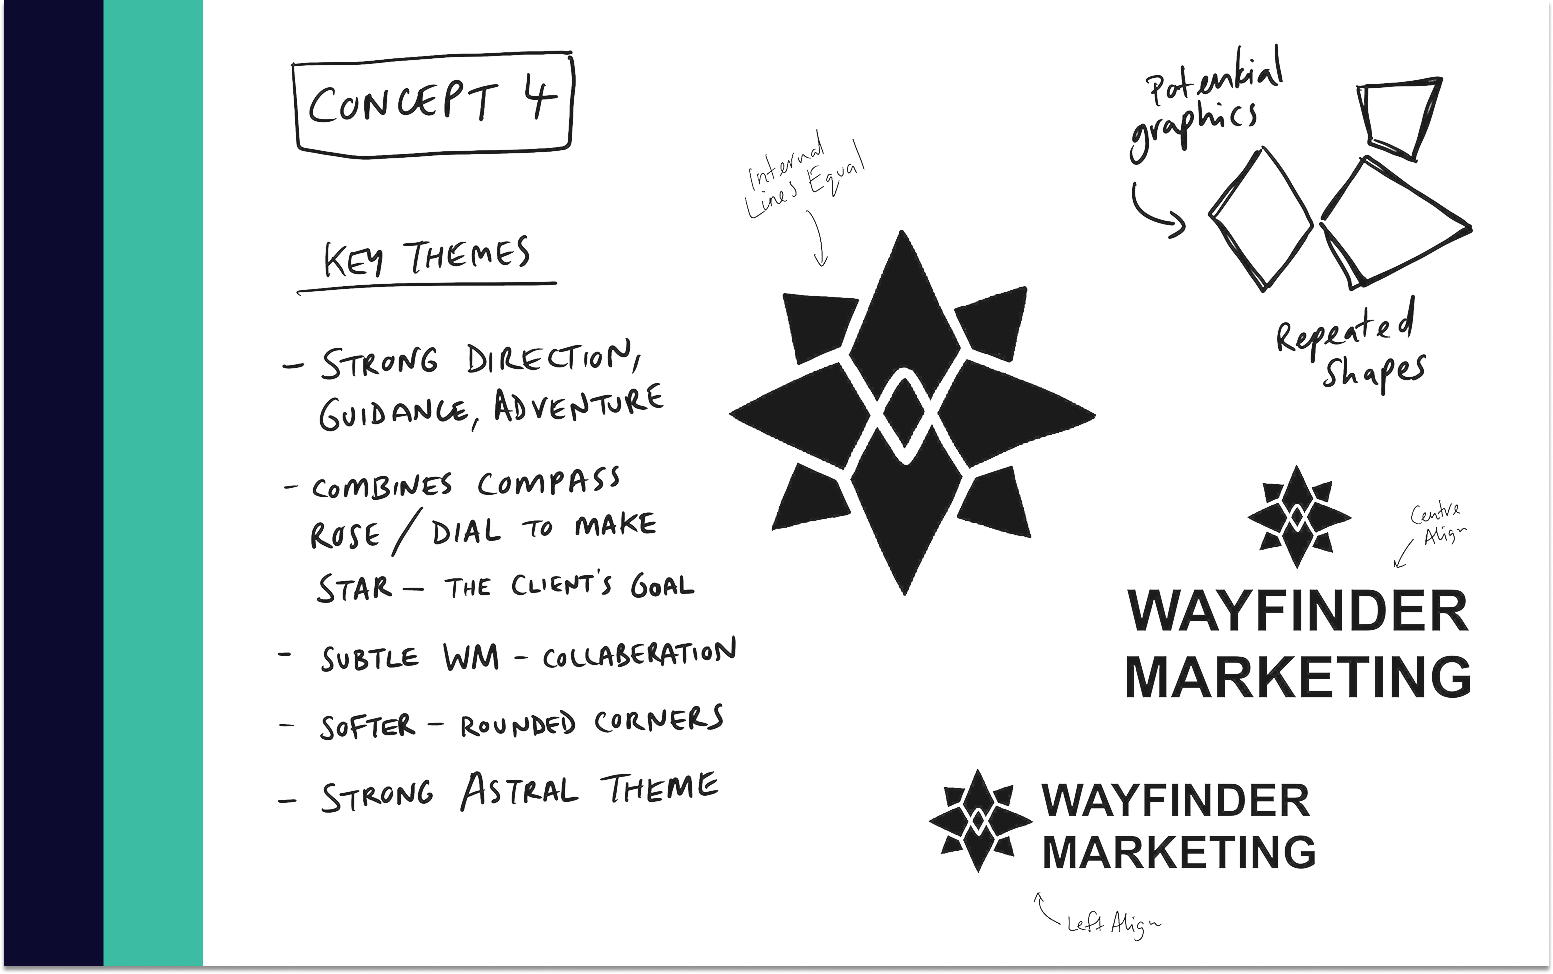 CONCEPT 4
KEY THEMES
- STRONG DIRECTION,
GUIDANCE, ADVENTURE
- COMBINES COMPASS
ROSE / DIAL TO MAKE
STAR - THE CLIENT'S GOAL
- SUBTLE WM - COLLABERATION
- SOFTER - ROUNDED CORNERS
- STRONG ASTRAL THEME
Internal
Lines Equal
Potential
graphics
Repeated
Shapes
Centre
Align
WAYFINDER
MARKETING
WAYFINDER
MARKETING
Left Align